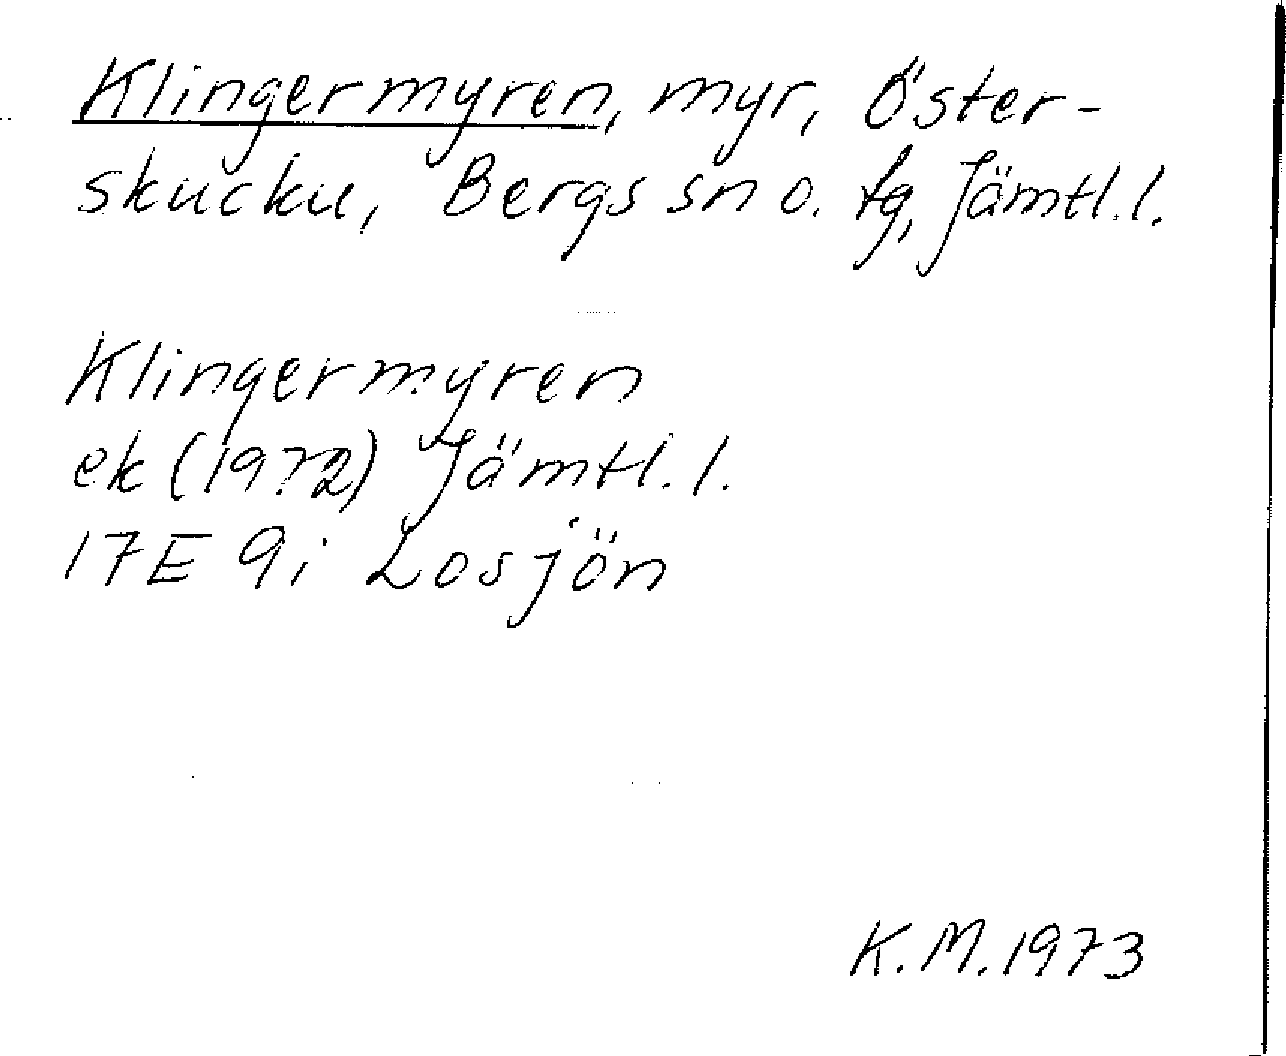 Klingermyren, myr, Öster-
skucku, Bergs sn o. tg, Jämtl.l.
Klingermyren
ek (1972) Jämtl.l.
17E 9i Losjön
K.M.1973